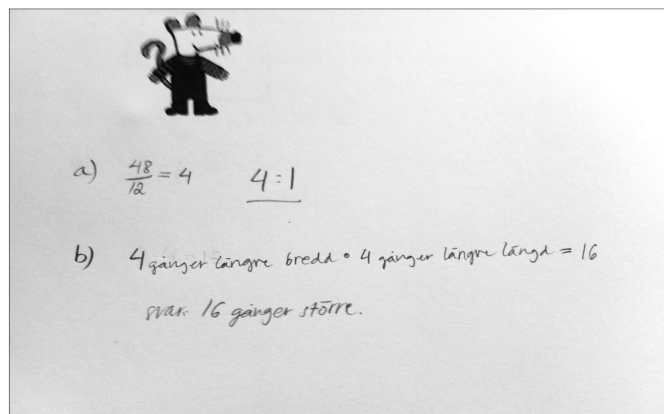 a) 48/12 = 4 4:1
b) 4 gånger längre bredd • 4 gånger längre längd = 16
svar: 16 gånger större.